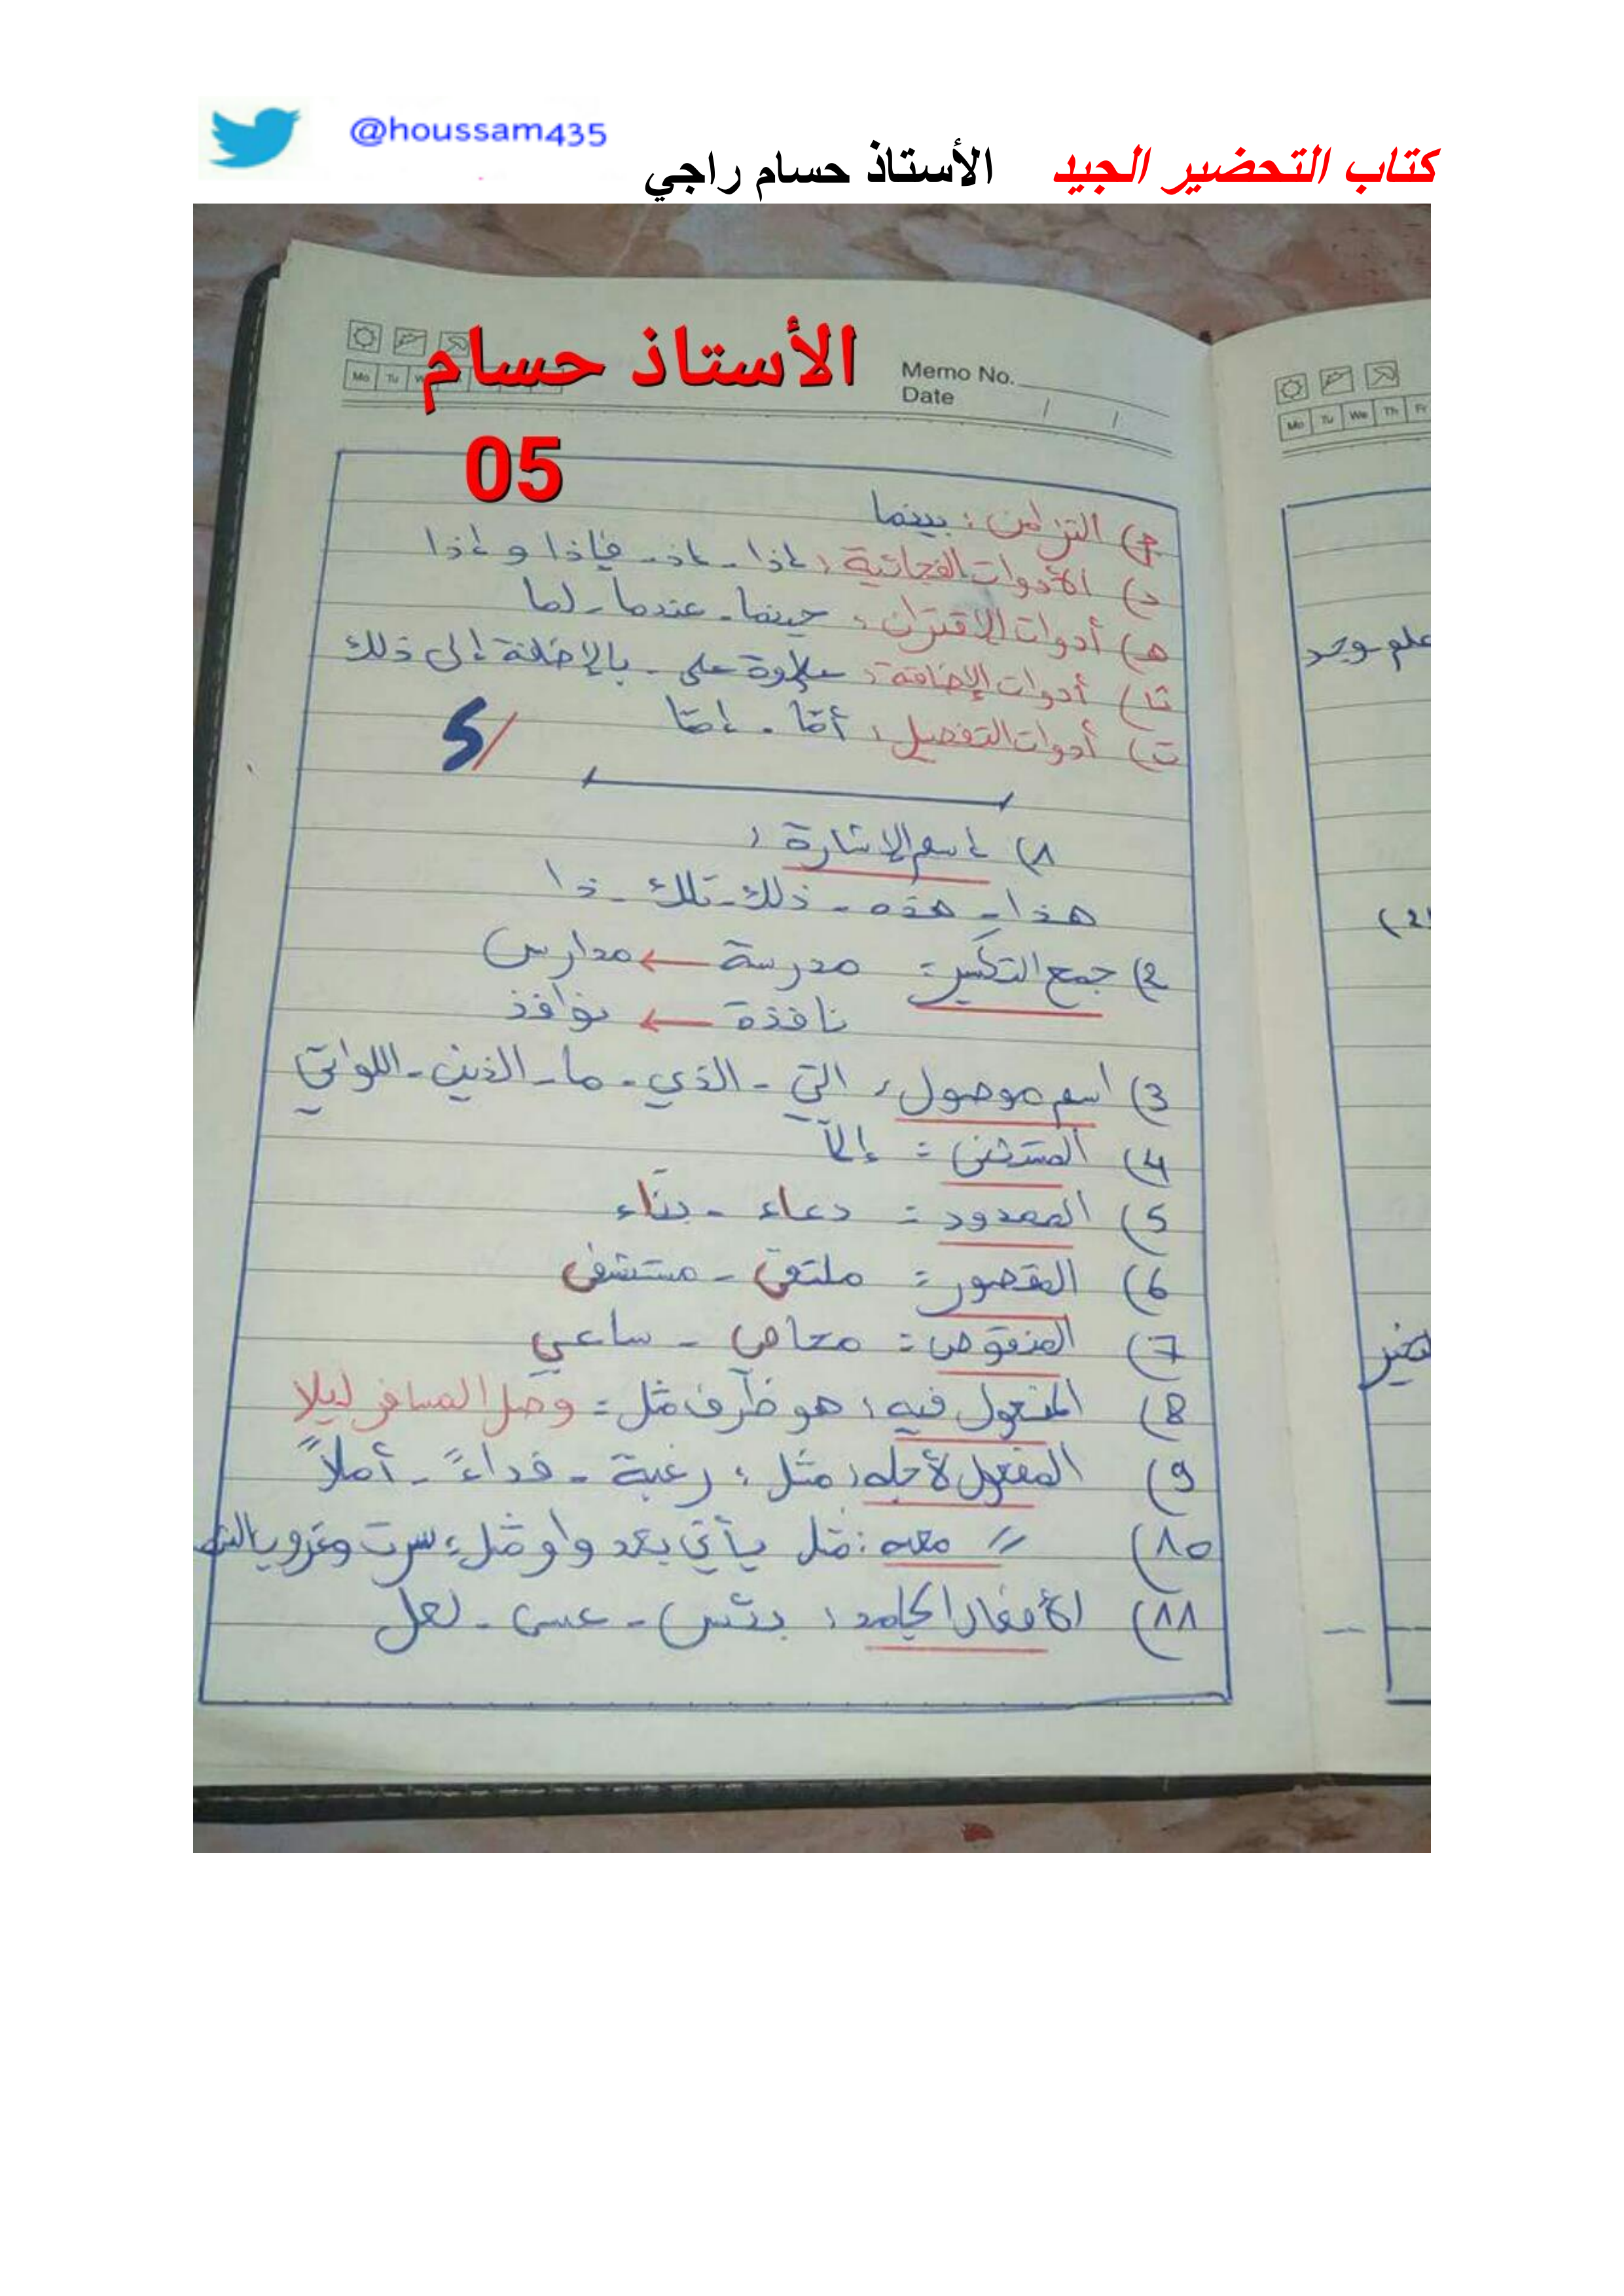 @houssam435
كتاب التحضير الجيد الأستاذ حسام راجي
الأستاذ حسام
05
Memo No.
Date / /
Mo Tu
ج) التزامن : بينما
د) الأدوات الفجائية : إذا - إذ - فإذا و إذا
هـ) أدوات الاقتران : حينما - عندما - لما
ث) أدوات الإضافة : علاوة على - بالإضافة إلى ذلك
ت) أدوات التفصيل : أمّا - إمّا
5/
1) إسم الإشارة :
هذا - هذه - ذلك - تلك - ذا
2) جمع التكسير : مدرسة ← مدارس
نافذة ← نوافذ
3) اسم موصول : التي - الذي - ما - الذين - اللواتي
4) المستثنى : إلاّ
5) الممدود : دعاء - بناء
6) المقصور : ملتقى - مستشفى
7) المنقوص : محامي - ساعي
8) المفعول فيه : هو ظرف مثل : وصل المسافر ليلا
9) المفعول لأجله : مثل : رغبة - فداءً - أملاً
10) // معه : مثل يأتي بعد واو مثل : سرت وغروب
11) الأفعال الجامد : بئس - عسى - لعل
Mo Tu We Th Fr
علم وجد
(2)